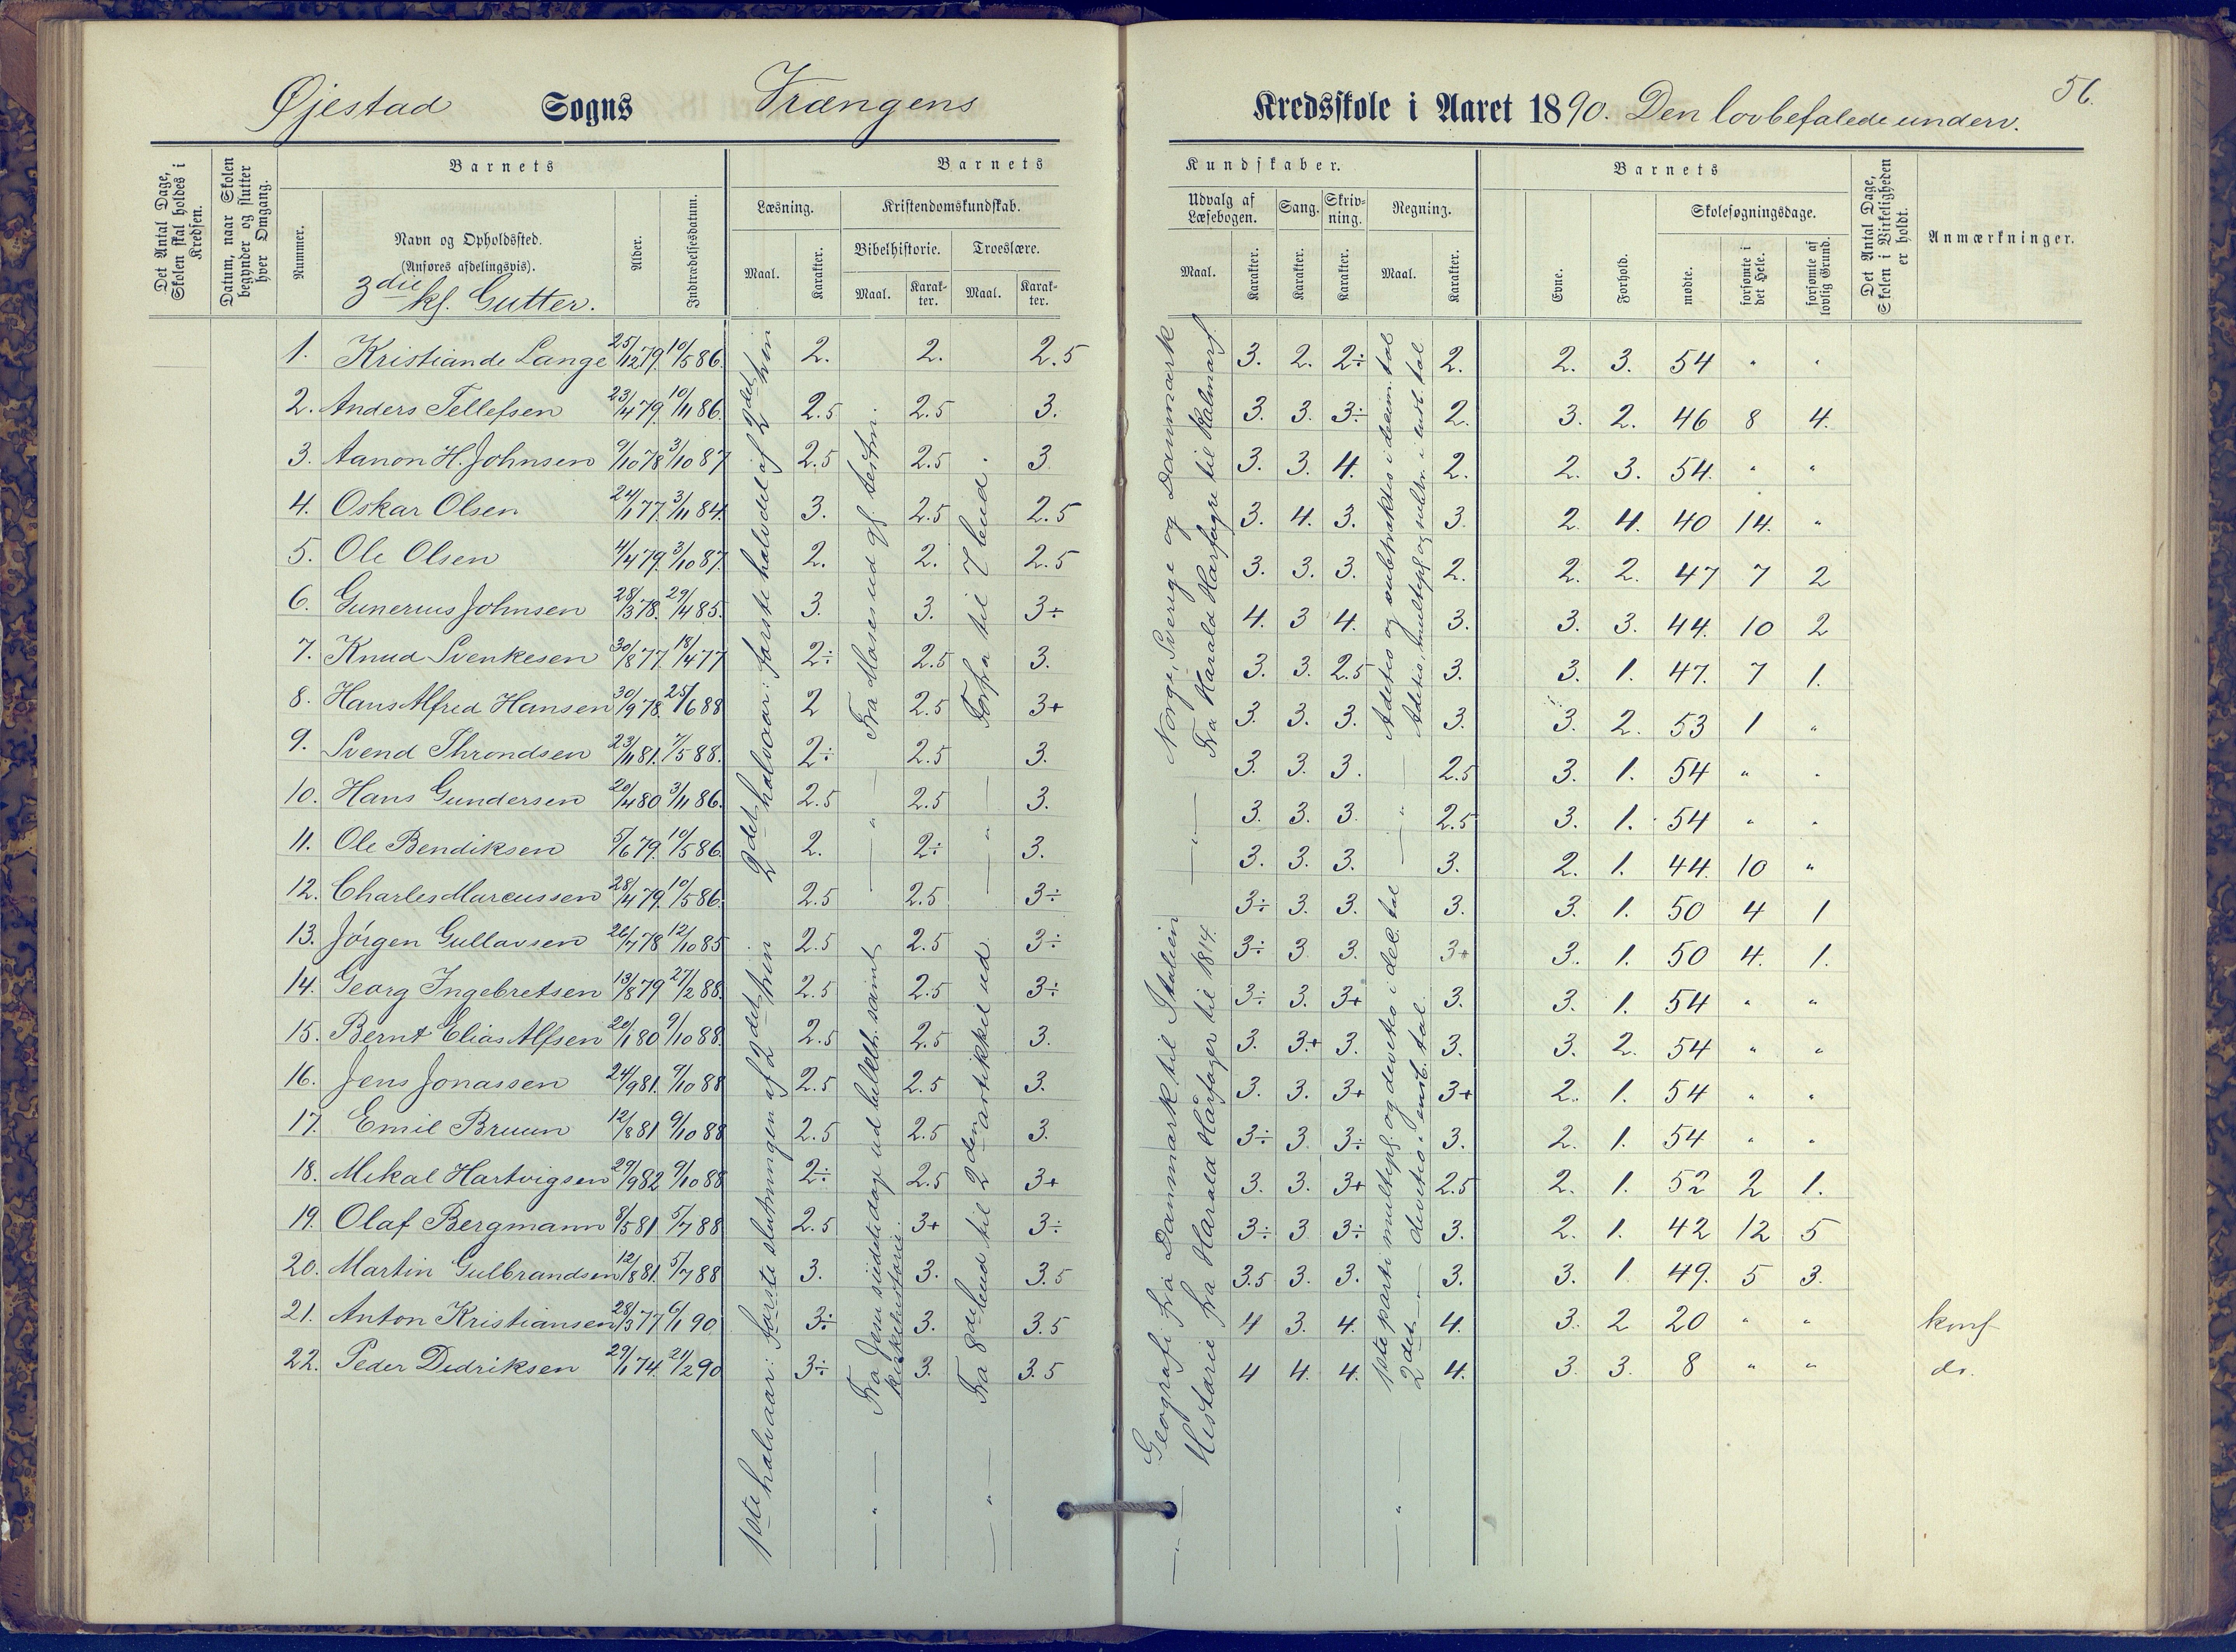 Øjestad Sogns Vrængens Kredsskole i Aaret 1890. Den lovbefalede underv.
56.
Det Antal Dage, Skolen skal holdes i Kredsen.
Datum, naar Skolen begynder og slutter hver Omgang.
Barnets
Nummer.
Navn og Opholdssted.
(Anføres afdelingsvis).
3die kl. Gutter.
Alder.
Indtrædelsesdatum.
Barnets Kundskaber.
Læsning.
Maal.
Karakter.
Kristendomskundskab.
Bibelhistorie.
Maal.
Karakter.
Troeslære.
Maal.
Karakter.
Udvalg af Læsebogen.
Maal.
Karakter.
Sang.
Karakter.
Skrivning.
Karakter.
Regning.
Maal.
Karakter.
Barnets
Evne.
Forhold.
Skolesøgningsdage.
mødte.
forsømte i det Hele.
forsømte af lovlig Grund.
Det Antal Dage, Skolen i Virkeligheden er holdt.
Anmærkninger.
1. Kristian de Lange 25/12 79 10/5 86. 2. 2. 2.5 3. 2. 2÷ 2. 2. 3. 54 " "
2. Anders Tellefsen 23/4 79. 10/11 86. 2.5 2.5 3. 3. 3. 3÷ 2. 3. 2. 46 8 4.
3. Aanon H. Johnsen 9/10 78 3/10 87 2.5 2.5 3 3. 3. 4. 2. 2. 3. 54. " "
4. Oskar Olsen 24/1 77. 3/11 84. 3. 2.5 2.5 3. 4. 3. 3. 2. 4. 40 14. "
5. Ole Olsen 4/4 79. 3/10 87. 2. 2. 2.5 3. 3. 3. 2. 2. 2. 47 7 2
6. Gunerius Johnsen 28/3 78. 29/4 85. 3. 3. 3÷ 4. 3 4. 3. 3. 3. 44. 10 2
7. Knud Svenkesen 30/8 77. 18/4 77 2÷ 2.5 3. 3. 3. 2.5 3. 3. 1. 47. 7 1.
8. Hans Alfred Hansen 30/9 78. 25/6 88 2 2.5 3+ 3. 3. 3. 3. 3. 2. 53 1 "
9. Svend Throndsen 23/11 81. 7/5 88. 2÷ 2.5 3. 3. 3. 3. 2.5 3. 1. 54 " "
10. Hans Gundersen 20/4 80 3/11 86. 2.5 2.5 3. 3. 3. 3. 2.5 3. 1. 54 " "
11. Ole Bendiksen 5/6 79. 10/5 86. 2. 2÷ 3. 3. 3. 3. 3. 2. 1. 44. 10 "
12. Charles Marcussen 28/4 79. 10/5 86. 2.5 2.5 3÷ 3÷ 3. 3. 3. 3. 1. 50 4 1
13. Jörgen Gullavsen 26/7 78 12/10 85 2.5 2.5 3÷ 3÷ 3 3. 3+ 3. 1. 50 4. 1.
14. Georg Ingebretsen 13/8 79 27/2 88. 2.5 2.5 3÷ 3÷ 3. 3+ 3. 3. 1. 54 " "
15. Bernt Elias Alfsen 20/1 80 9/10 88. 2.5 2.5 3. 3. 3+ 3. 3. 3. 2. 54 " "
16. Jens Jonassen 24/9 81. 9/10 88 2.5 2.5 3. 3. 3. 3+ 3+ 2. 1. 54 " "
17. Emil Bruun 12/8 81 9/10 88 2.5 2.5 3. 3÷ 3 3÷ 3. 2. 1. 54 " "
18. Mikal Hartvigsen 29/9 82 9/10 88 2÷ 2.5 3+ 3. 3. 3+ 2.5 2. 1. 52 2 1.
19. Olaf Bergmann 8/5 81 5/7 88 2.5 3+ 3÷ 3÷ 3 3÷ 3. 2. 1. 42 12 5
20. Martin Gulbrandsen 12/8 81. 5/7 88 3. 3. 3.5 3.5 3. 3. 3. 3. 1. 49. 5 3.
21. Anton Kristiansen 28/3 77 6/1 90 3÷ 3. 3.5 4 3. 4. 4. 3. 2 20 " " konf
22. Peder Dedriksen 29/1 74. 21/2 90 3÷ 3. 3.5 4 4. 4. 4. 3. 3. 8 " " do.
1ste halvaar: første slutningen af 2det trin
2det halvaar: første halvdel af 2det trin
Fra Jesu sidste dage ud bibelh. samt kirkehistorie.
Fra Moses ud gl. testm.
Fra 8de bud til 2den artikkel ud
Forfra til 7 bud.
Geografi fra Danmark til Italien
Historie fra Harald Hårfager til 1814.
Norge, Sverige og Danmark
Fra Harald Harfagre til Kalmarf.
1ste parti multipl. og devitio i del. tal
2det — " — devitio i enst. tal.
Aditio og subtraktio i decim. tal